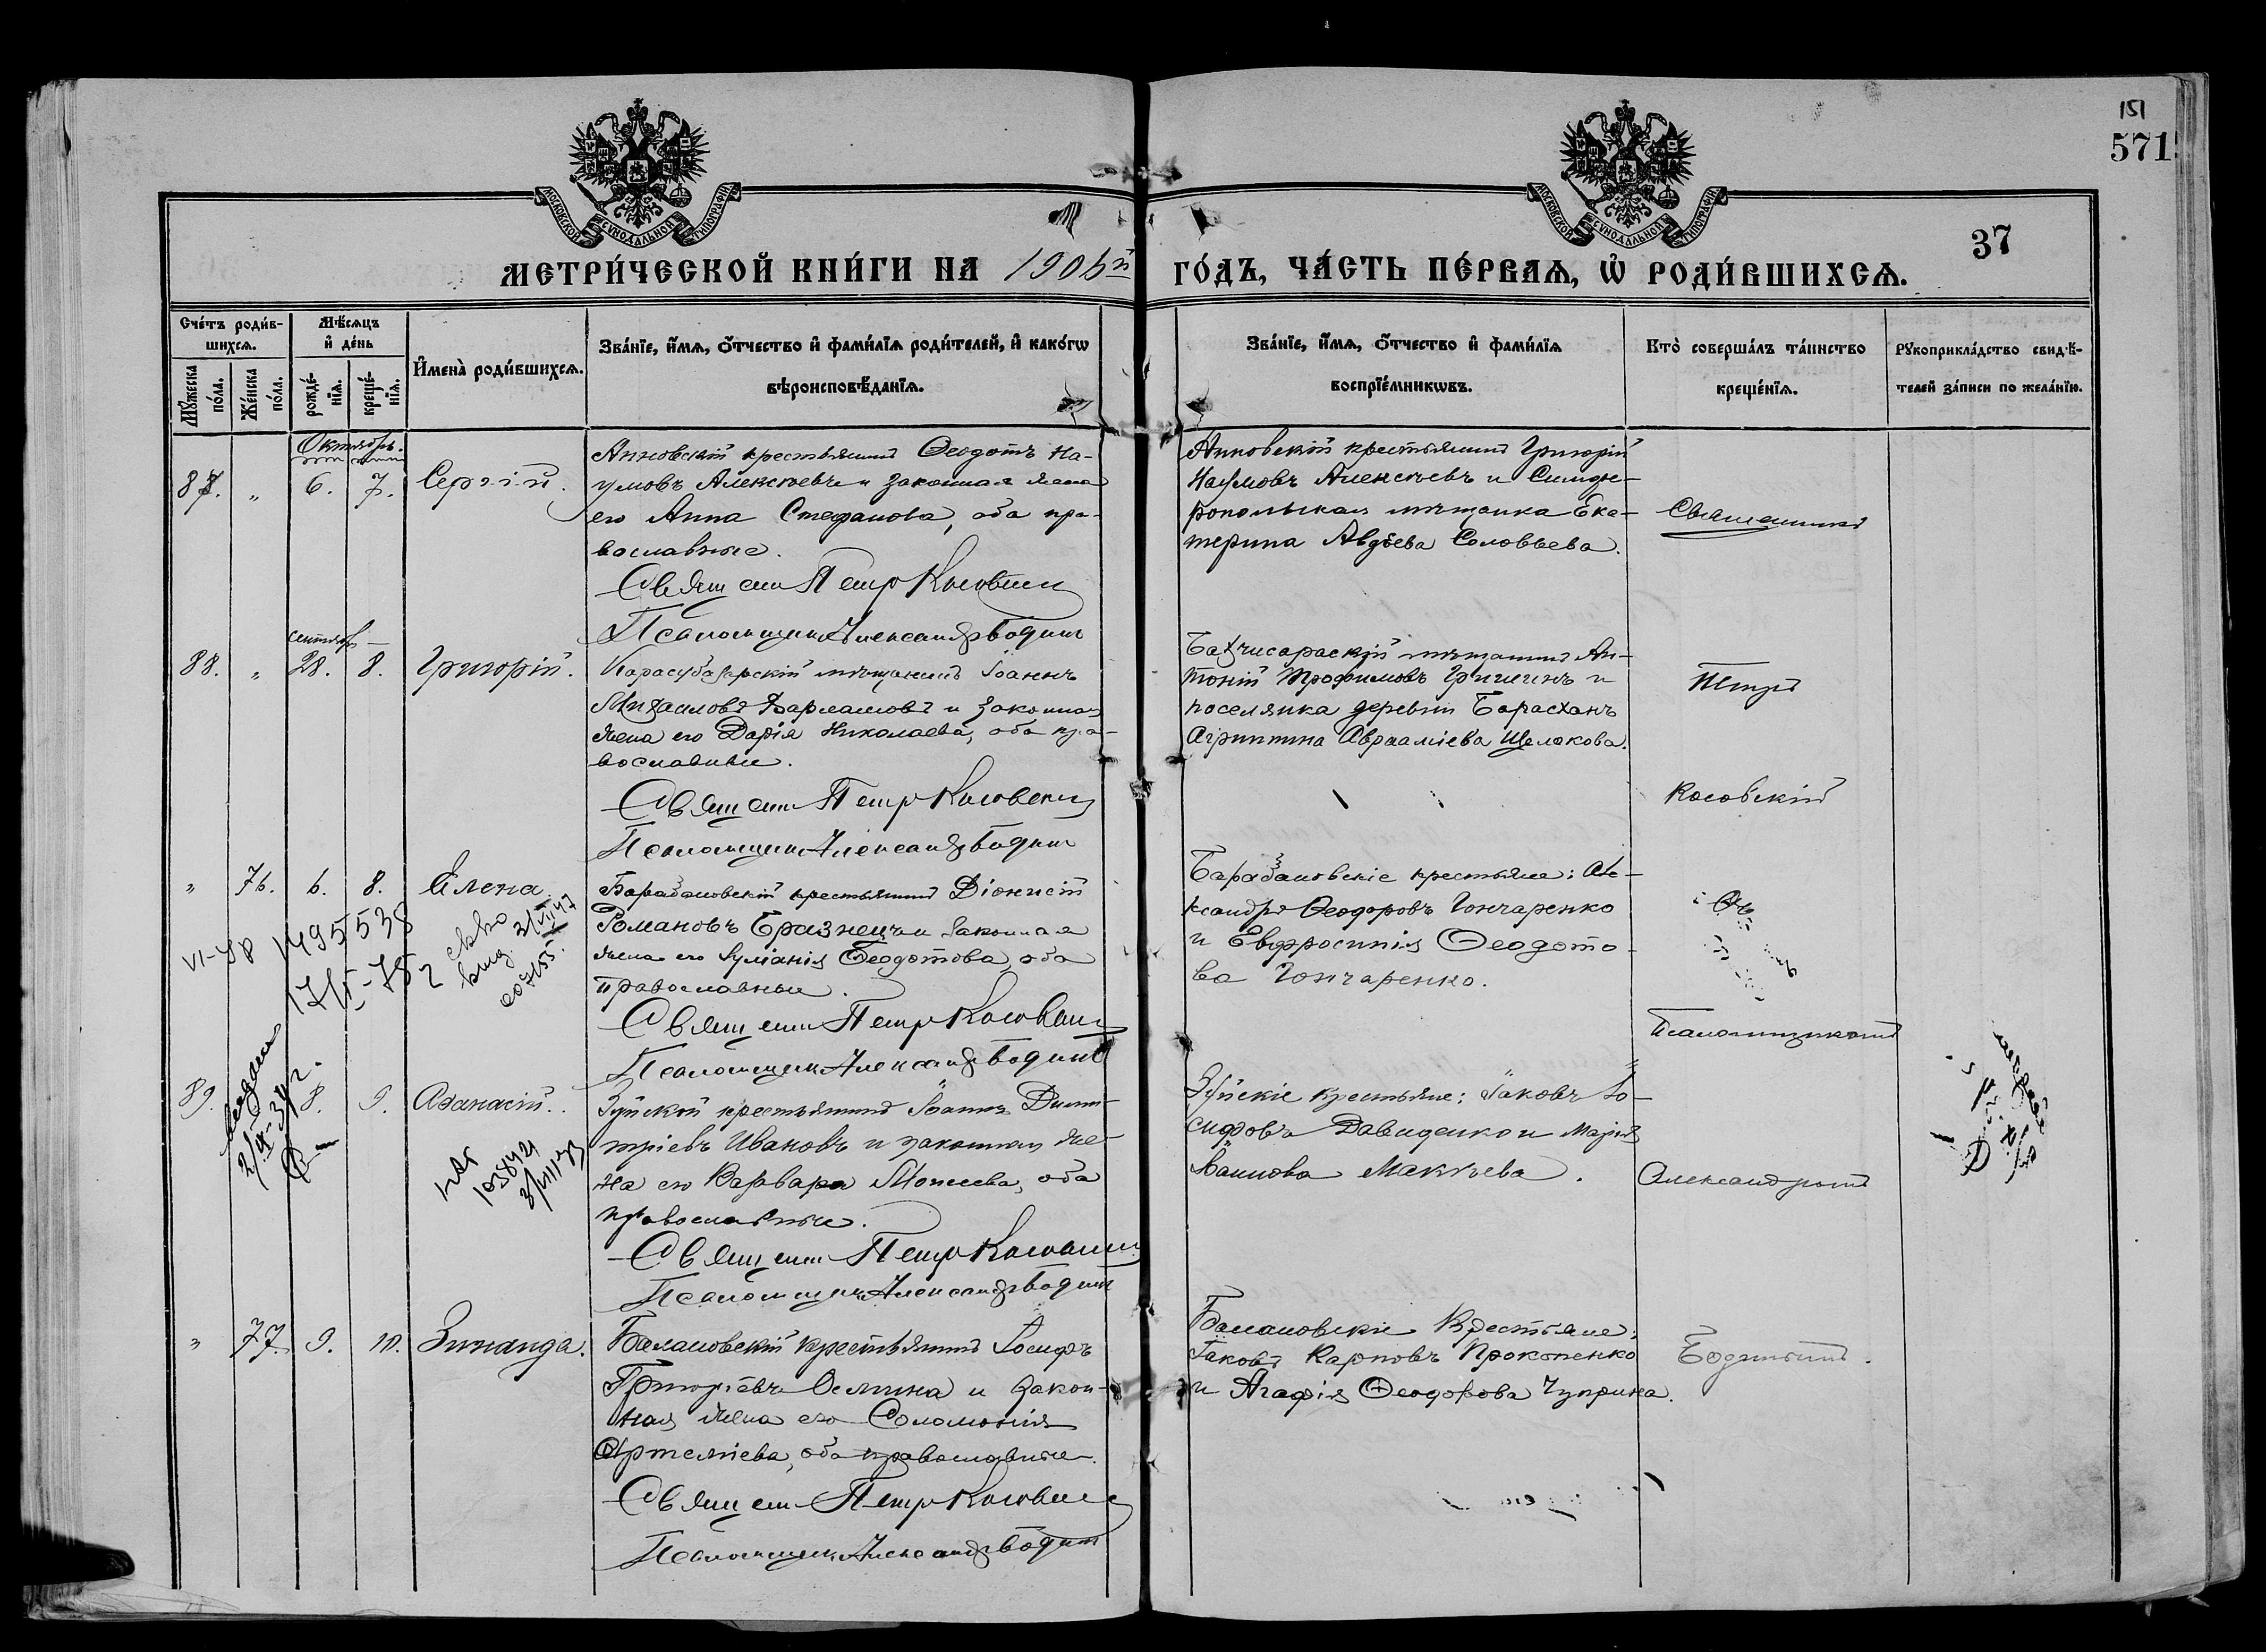 151
571
37
МОСКОВСКОЙ СѴНОДАЛЬНОЙ ТИПОГРАФІИ
МОСКОВСКОЙ СѴНОДАЛЬНОЙ ТИПОГРАФІИ
МЕТРИ́ЧЕСКОЙ КНИ́ГИ НА 1906й ГО́ДЪ, ЧА́СТЬ ПЕ́РВАѦ, Ѡ РОДИ́ВШИХСѦ.
Сче́тъ роди́вшихсѧ.
Мѣ́сѧцъ и҆ де́нь
И҆мена̀ роди́вшихсѧ.
Зва́нїе, и҆́мѧ, ѻ҆́тчество и҆ фами́лїѧ роди́телей, и҆ како́гѡ
вѣроисповѣ́данїѧ.
Зва́нїе, и҆́мѧ, ѻ҆́тчество и҆ фами́лїѧ
воспрїе́мникѡвъ.
Кто̀ соверша́лъ та́инство
креще́нїѧ.
Рꙋкоприкла́дство свидѣ́-
телей за́писи по жела́нїю.
Мꙋ́жеска по́ла.
Же́нска по́ла.
рожде́-нїѧ.
креще́-нїѧ.
Октябрь.
87. " 6. 7. Сергій.
Анновскій крестьянинъ Ѳеодотъ На-
умовъ Алексѣевъ и законная жена
его Анна Стефанова, оба пра-
вославные.
Священ Петр Косовский
Псаломщик Александр Бодин
Анновскій крестьянинъ Григорій
Наумовъ Алексѣевъ и Симфе-
ропольская мѣщанка Ека-
терина Авдѣева Соловьева.
Священникъ
сентябрь
88. " 28. 8. Григорій.
Карасубазарскій мѣщанинъ Іоаннъ
Михаиловъ Варламовъ и законная
жена его Дарія Николаева, оба пра-
вославные.
Священ Петр Косовский
Псаломщик Александр Бодин
Бахчисарайскій мѣщанинъ Ан-
тоній Трофимовъ Гришинъ и
поселянка деревни Барасханъ
Агриппина Авраамiева Щелокова.
Петръ
Косовскій
" 76. 6. 8. Елена.
Барабановскій крестьянинъ Діонисій
Романовъ Бразнецъ и законная
жена его Іуліанія Ѳеодотова, оба
православные.
Священ Петр Косовский
Псаломщик Александр Бодин
Барабановскіе крестьяне: Але-
ксандръ Ѳеодоровъ Гончаренко
и Евфросинія Ѳеодото-
ва Гончаренко.
съ
Псаломщикомъ
495538
89. 8. 9. Аѳанасій.
Зуйскій крестьянинъ Іоаннъ Дими-
тріевъ Ивановъ и законная же-
на его Варвара Моисеева, оба
православные.
Священ Петр Косовский
Псаломщик Александр Бодин
Зуйскіе крестьяне: Іаковъ Іо-
сифовъ Давиденко и Марія
Іоаннова Макѣева.
Александромъ
1058421
" 77. 9. 10. Зинаида.
Балановскій крестьянинъ Іосифъ
Григоріевъ Осмина и закон-
ная жена его Соломонія
Артеміева, оба православные.
Священ Петр Косовский
Псаломщик Александр Бодин
Балановскіе крестьяне:
Іаковъ Карповъ Прокопенко
и Агафія Ѳеодорова Чуприна.
Бодинымъ.